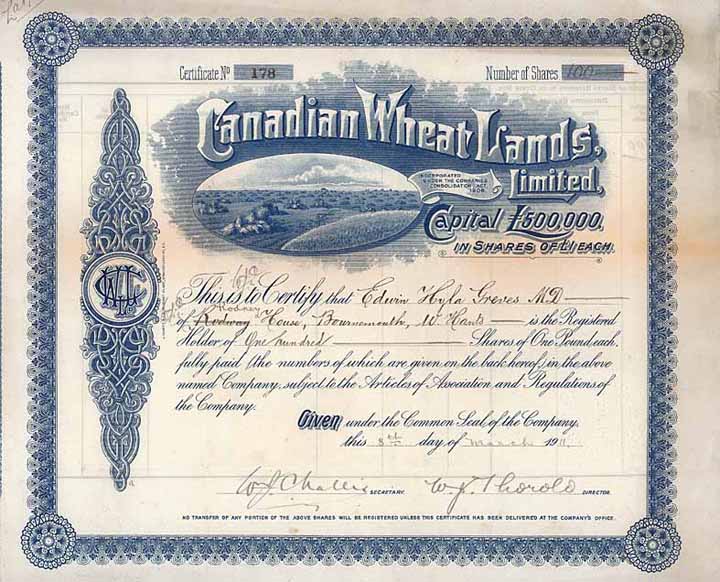 Certificate No 178
Number of Shares 100
Canadian Wheat Lands,
Limited,
INCORPORATED
UNDER THE COMPANIES
CONSOLIDATION ACT,
1908.
Capital £500,000,
IN SHARES OF £1 EACH.
This is to Certify that Edwin Hyla Greves M.D.
Rodney
of Rodway House, Bournemouth, W Hants is the Registered
Holder of One hundred Shares of One Pound each,
fully paid (the numbers of which are given on the back hereof) in the above
named Company, subject to the Articles of Association and Regulations of
the Company.
Given under the Common Seal of the Company,
this 8th day of March 1911.
W.J. Challis SECRETARY. W.J. Thorold DIRECTOR.
NO TRANSFER OF ANY PORTION OF THE ABOVE SHARES WILL BE REGISTERED UNLESS THIS CERTIFICATE HAS BEEN DELIVERED AT THE COMPANY'S OFFICE.